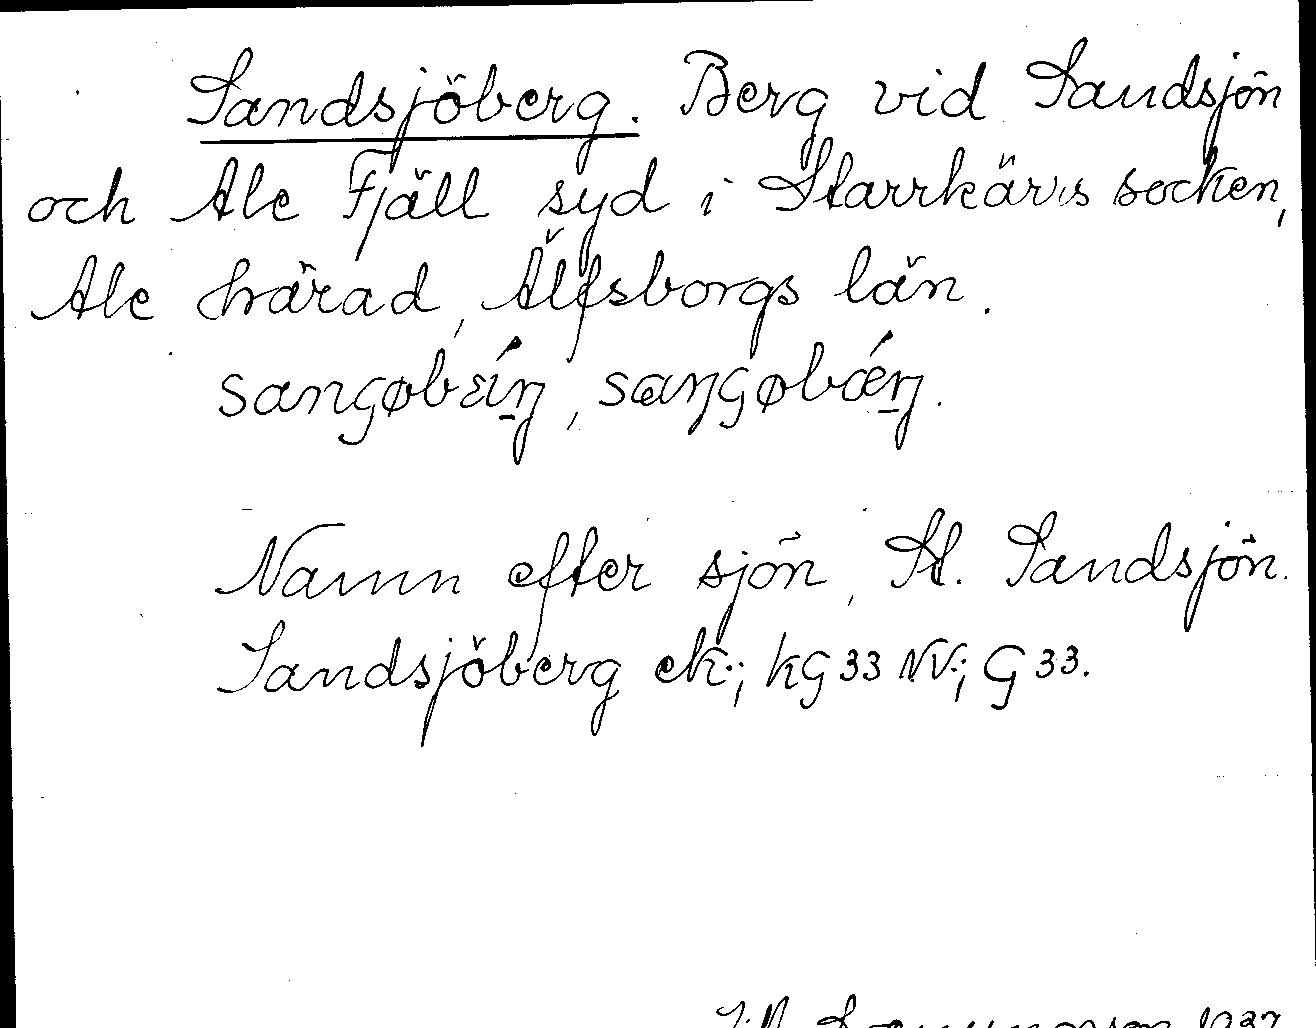 Sandsjöberg. Berg vid Sandsjön
och Ale Fjäll syd i Starrkärs socken,
Ale härad, Älfsborgs län.
Namn efter sjön, St. Sandsjön.
Sandsjöberg ek.; KG 33 NV.; G 33.